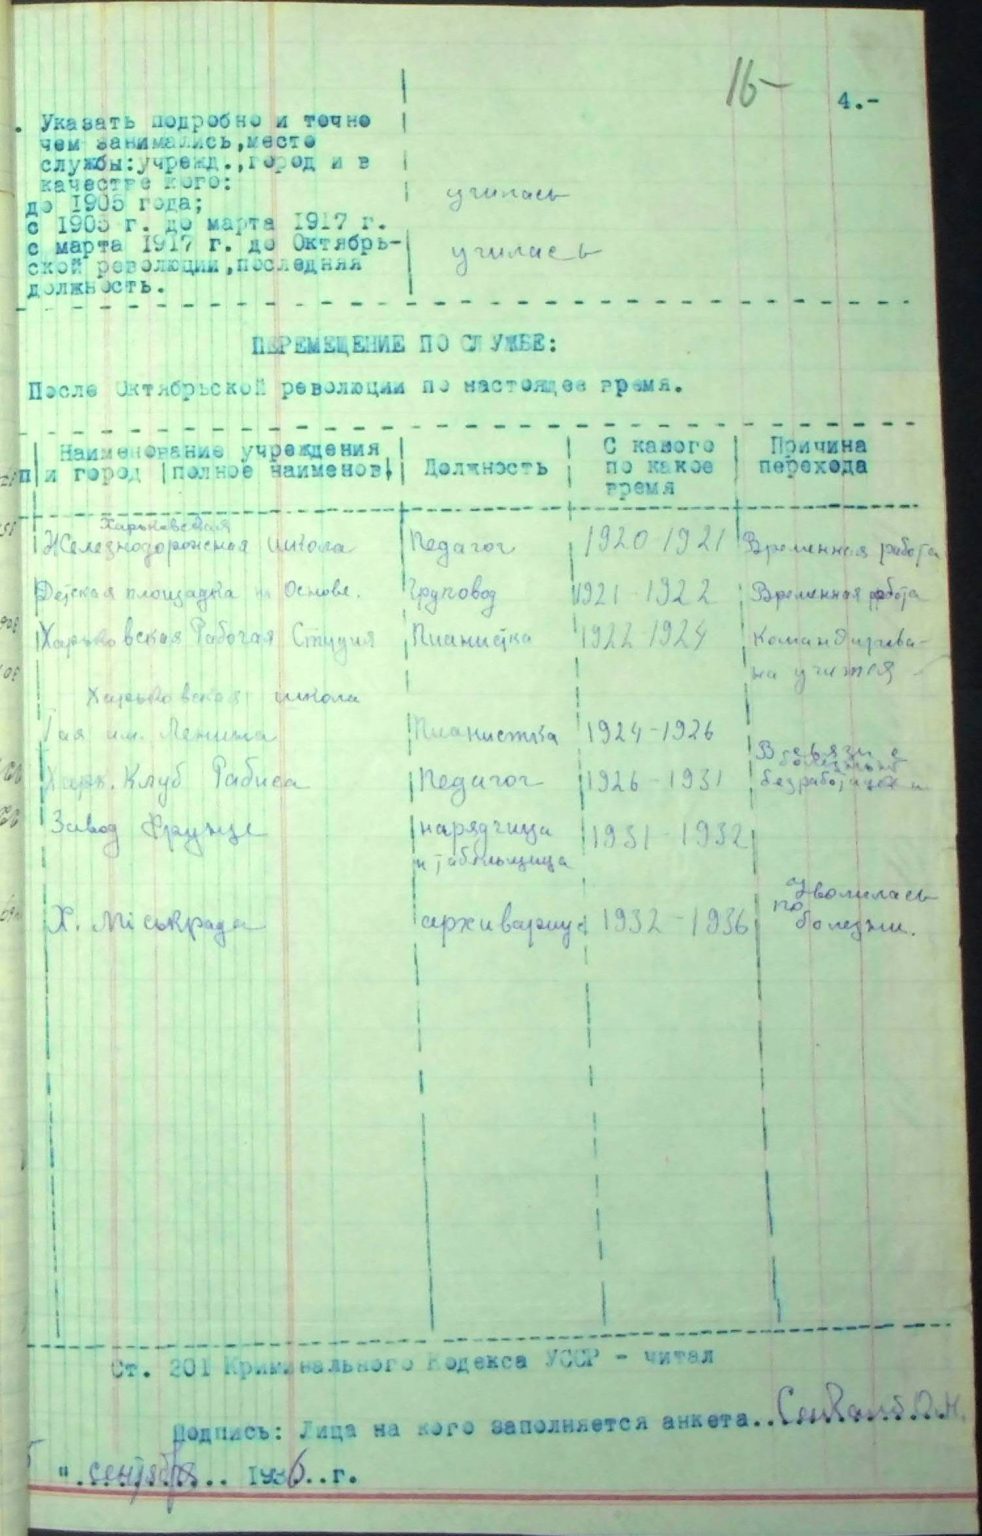 16-
4.-
. Указать подробно и точно
чем занимались,место
службы:учрежд.,город и в
качестве кого:
до 1905 года;
училась
с 1905 г. до марта 1917 г.
с марта 1917 г. до Октябрь-
училась
ской революции,последняя
должность.
ПЕРЕМЕЩЕНИЕ ПО СЛУЖБЕ:
После Октябрьской революции по настоящее время.
Наименование учреждения С какого Причина
п и город полное наименов. Должность по какое перехода
время
Харьковская
Железнодорожная школа Педагог 1920-1921 Временная работа
Детская площадка на Основе. Груповод 1921-1922 Временная работа
Харьковская Рабочая Студия Пианистка 1922-1924 Командирова-
на учится
Харьковская школа
им. Ленина Пианистка 1924-1926
В связи с
Харь. Клуб Рабиса Педагог 1926-1931 безработицей
Завод Фрунзе нарядчица 1931-1932
и табельщица
Уволилась
Х. Міськрада архивариус 1932-1936 по
болезни.
Ст. 201 Криминального Кодекса УССР - читал
Подпись: Лица на кого заполняется анкета..
".сентября.. 1936..г.